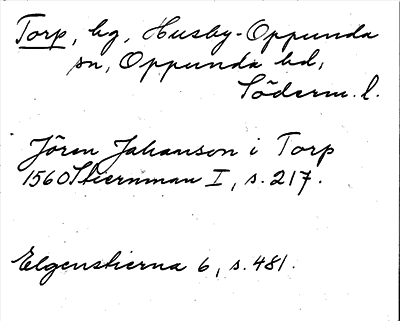 Torp, by, Husby-Oppunda
sn, Oppunda hd,
Söderm. l.
Jören Johanson i Torp
1560 Stiernman I, s. 217.
Elgenstierna 6, s. 481.